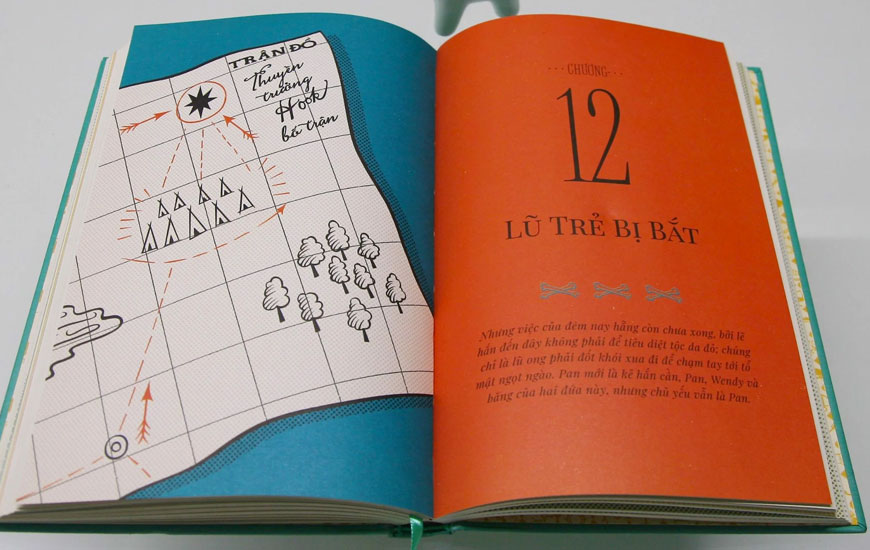 TRẬN ĐỒ
Thuyền
trưởng
Hook
bố trận
CHƯƠNG
12
LŨ TRẺ BỊ BẮT
Nhưng việc của đêm nay hẵng còn chưa xong, bởi lẽ
hắn đến đây không phải để tiêu diệt tộc da đỏ; chúng
chỉ là lũ ong phải đốt khói xua đi để chạm tay tới tổ
mật ngọt ngào. Pan mới là kẻ hắn cần, Pan, Wendy và
băng của hai đứa này, nhưng chủ yếu vẫn là Pan.